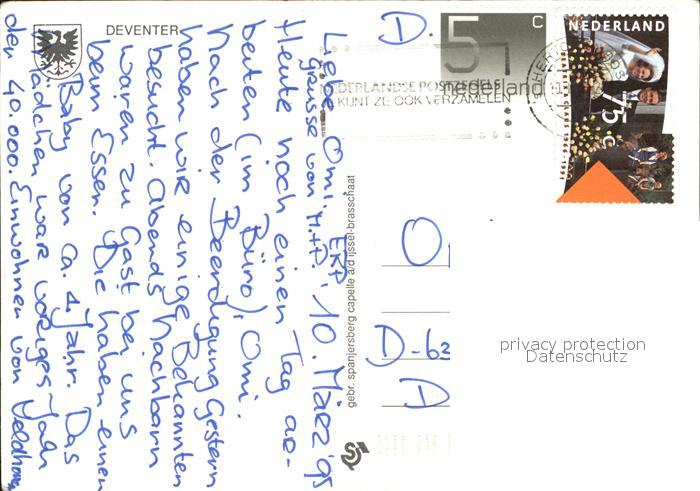 DEVENTER
Liebe Omi! 10. März '95
grüsse von H.+P. EKP
Heute noch einen Tag ar-
beiten (im Büro), Omi.
Nach der Beerdigung Gestern
haben wir einige Bekannten
besucht. Abends Nachbarn
waren zu Gast bei uns
beim Essen. Die haben einen
Baby von ca. 1 Jahr. Das
Mädchen war voriges Jahr
der 40.000. Einwohner von Veldhoven
gebr. spanjersberg capelle a/d ijssel-brasschaat
D.
5 C
nederland
NEDERLANDSE POSTZEGELS
KUNT ZE OOK VERZAMELEN
NEDERLAND
75 c
BEATRIX CLAUS 1966-1991
O
D-63
D
privacy protection
Datenschutz